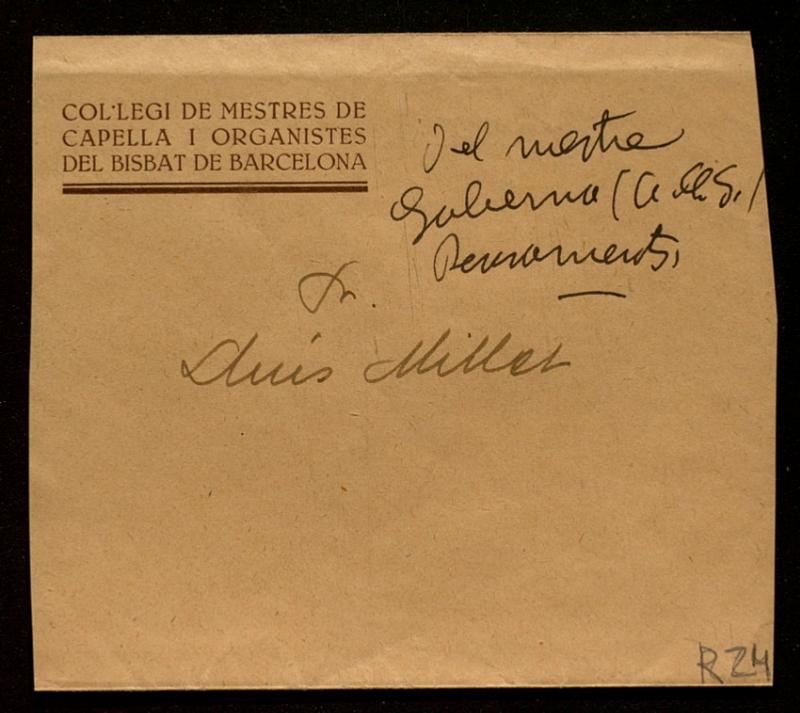 COL·LEGI DE MESTRES DE
CAPELLA I ORGANISTES
DEL BISBAT DE BARCELONA
Del mestre
Goberna (
Pensaments,
Sr.
Lluís Millet
R 24